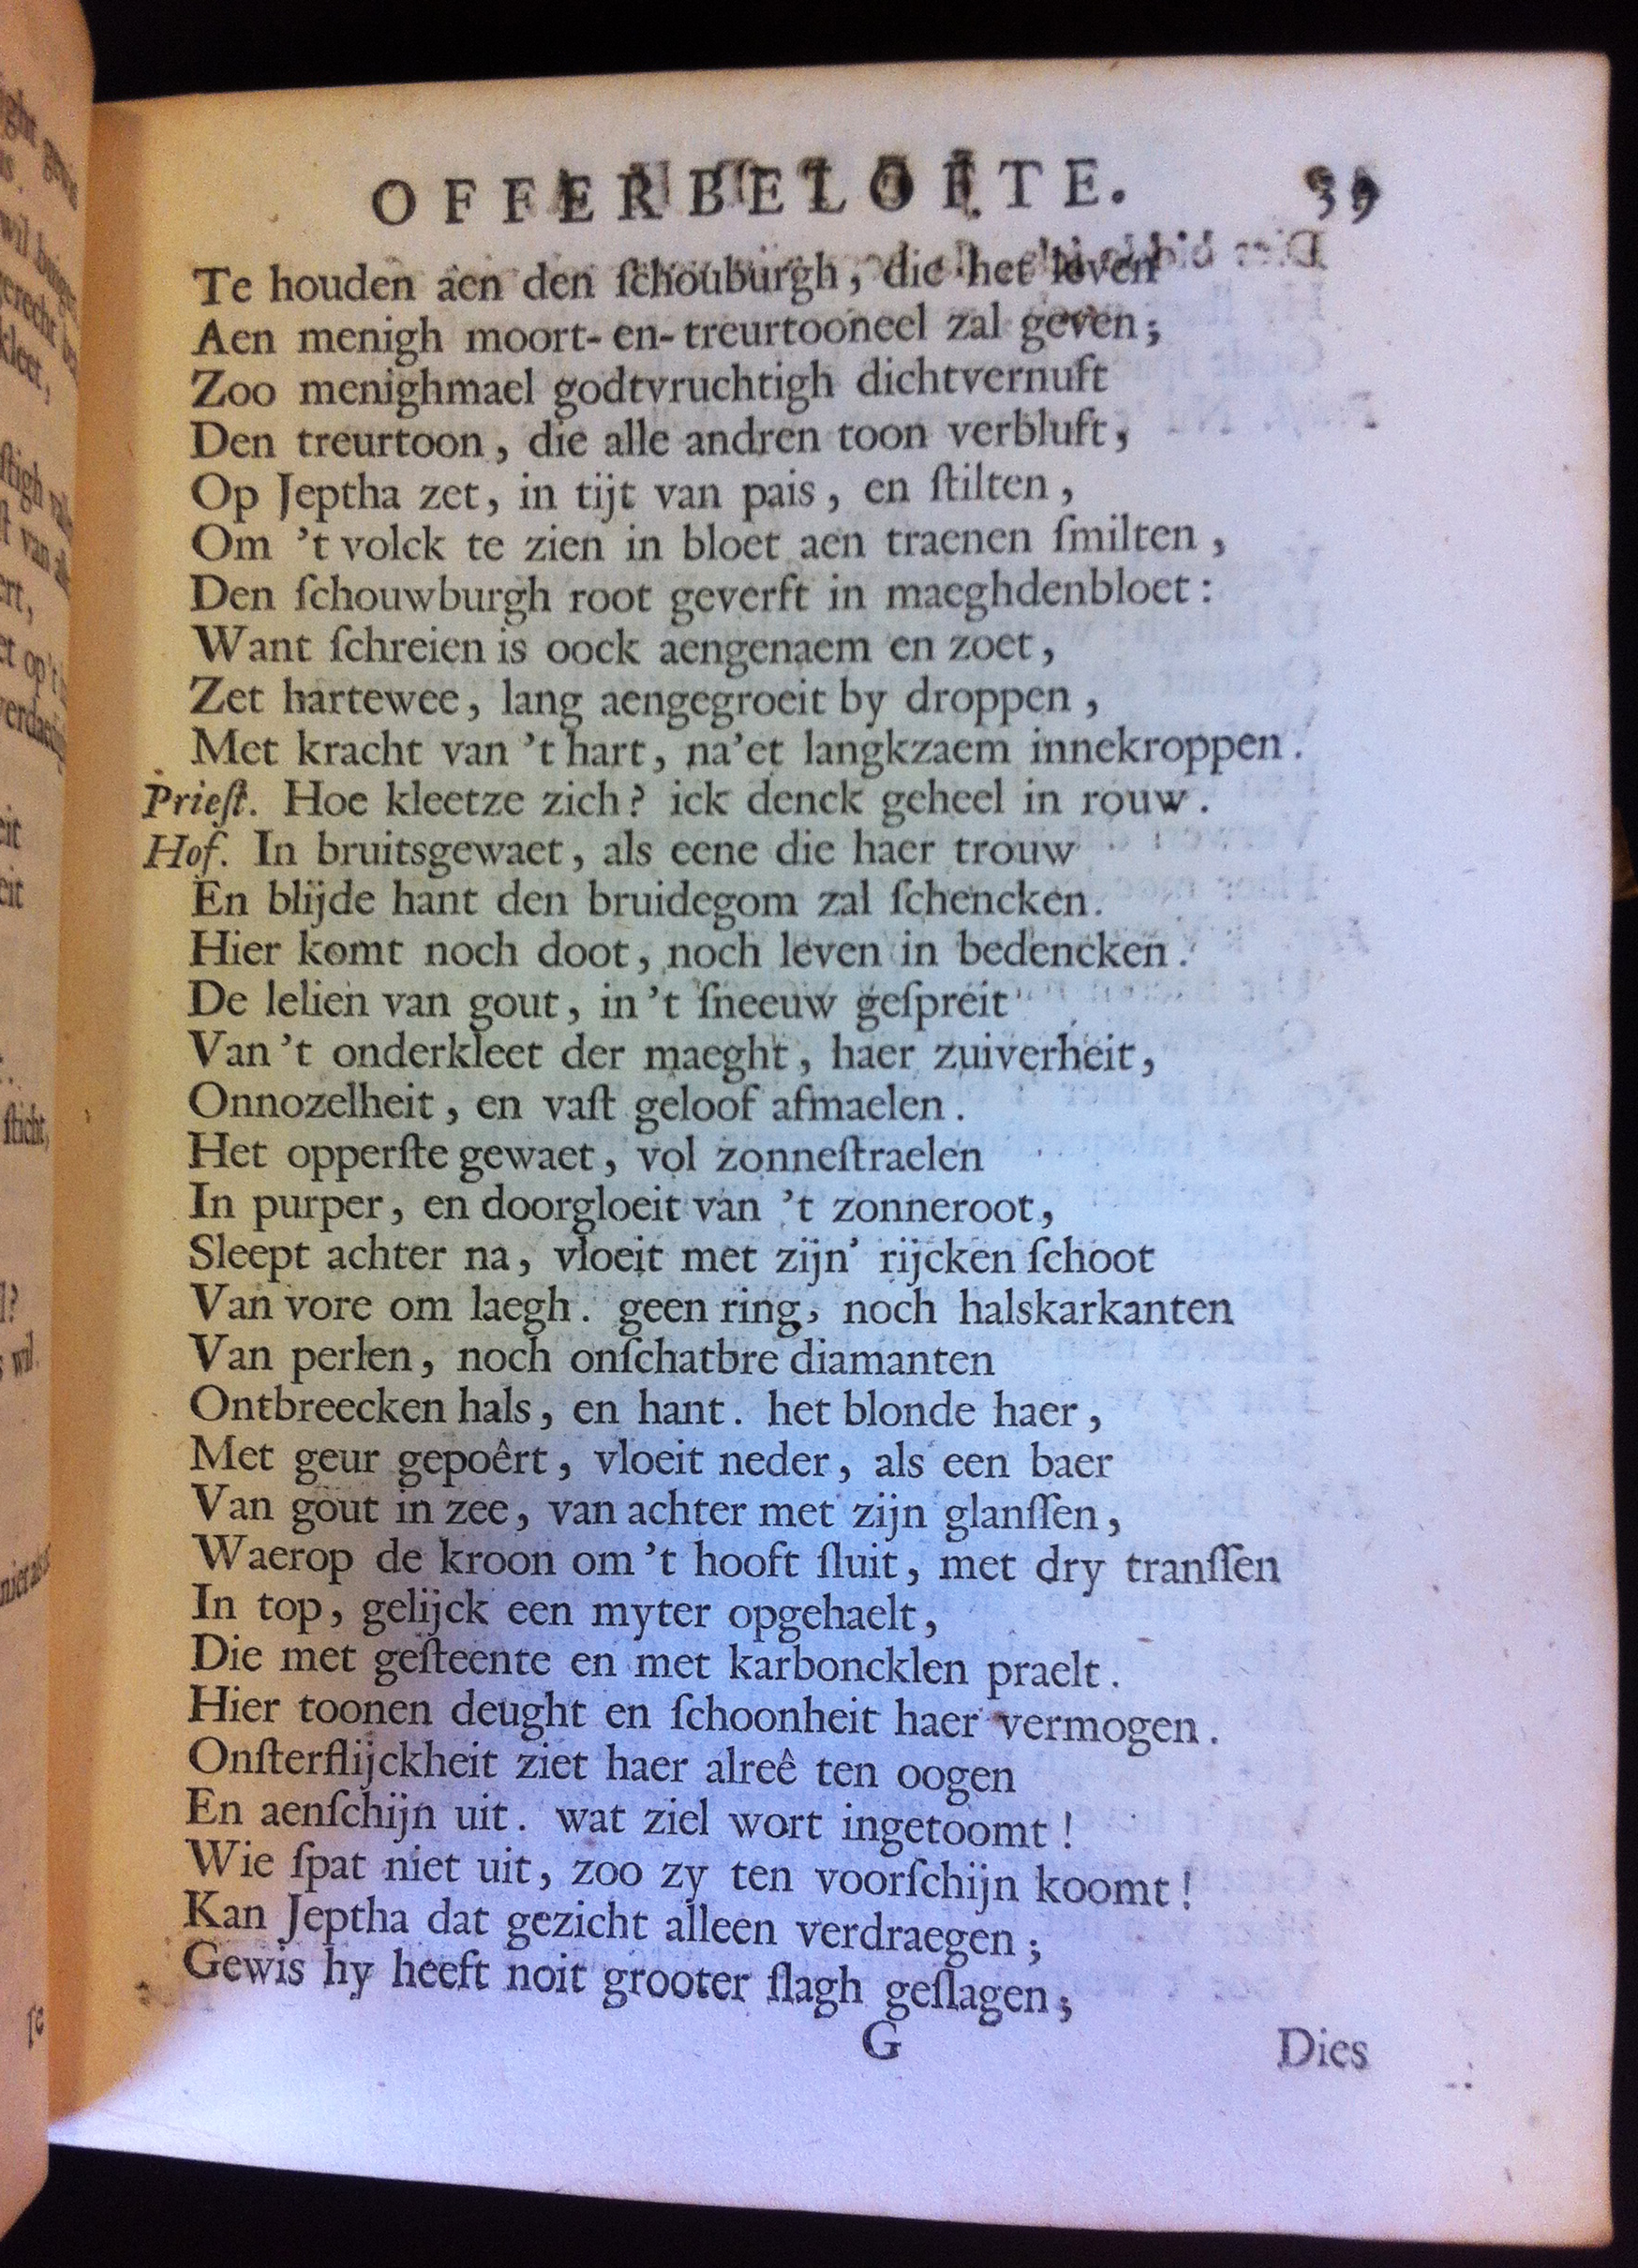 OFFERBELOFTE. 39
Te houden aen den ſchouburgh, die het leven
Aen menigh moort- en- treurtooneel zal geven;
Zoo menighmael godtvruchtigh dichtvernuft
Den treurtoon, die alle andren toon verbluft,
Op Jeptha zet, in tijt van pais, en ſtilten,
Om 't volck te zien in bloet aen traenen ſmilten,
Den ſchouwburgh root geverft in maeghdenbloet:
Want ſchreien is oock aengenaem en zoet,
Zet hartewee, lang aengegroeit by droppen,
Met kracht van 't hart, na'et langkzaem innekroppen.
Prieſt. Hoe kleetze zich? ick denck geheel in rouw.
Hof. In bruitsgewaet, als eene die haer trouw
En blijde hant den bruidegom zal ſchencken.
Hier komt noch doot, noch leven in bedencken.
De lelien van gout, in 't ſneeuw geſpreit
Van 't onderkleet der maeght, haer zuiverheit,
Onnozelheit, en vaſt geloof afmaelen.
Het opperſte gewaet, vol zonneſtraelen
In purper, en doorgloeit van 't zonneroot,
Sleept achter na, vloeit met zijn' rijcken ſchoot
Van vore om laegh. geen ring, noch halskarkanten
Van perlen, noch onſchatbre diamanten
Ontbreecken hals, en hant. het blonde haer,
Met geur gepoêrt, vloeit neder, als een baer
Van gout in zee, van achter met zijn glanſſen,
Waerop de kroon om 't hooft ſluit, met dry tranſſen
In top, gelijck een myter opgehaelt,
Die met geſteente en met karboncklen praelt.
Hier toonen deught en ſchoonheit haer vermogen.
Onſterflijckheit ziet haer alreê ten oogen
En aenſchijn uit. wat ziel wort ingetoomt!
Wie ſpat niet uit, zoo zy ten voorſchijn koomt!
Kan Jeptha dat gezicht alleen verdraegen;
Gewis hy heeft noit grooter ſlagh geſlagen;
G Dies